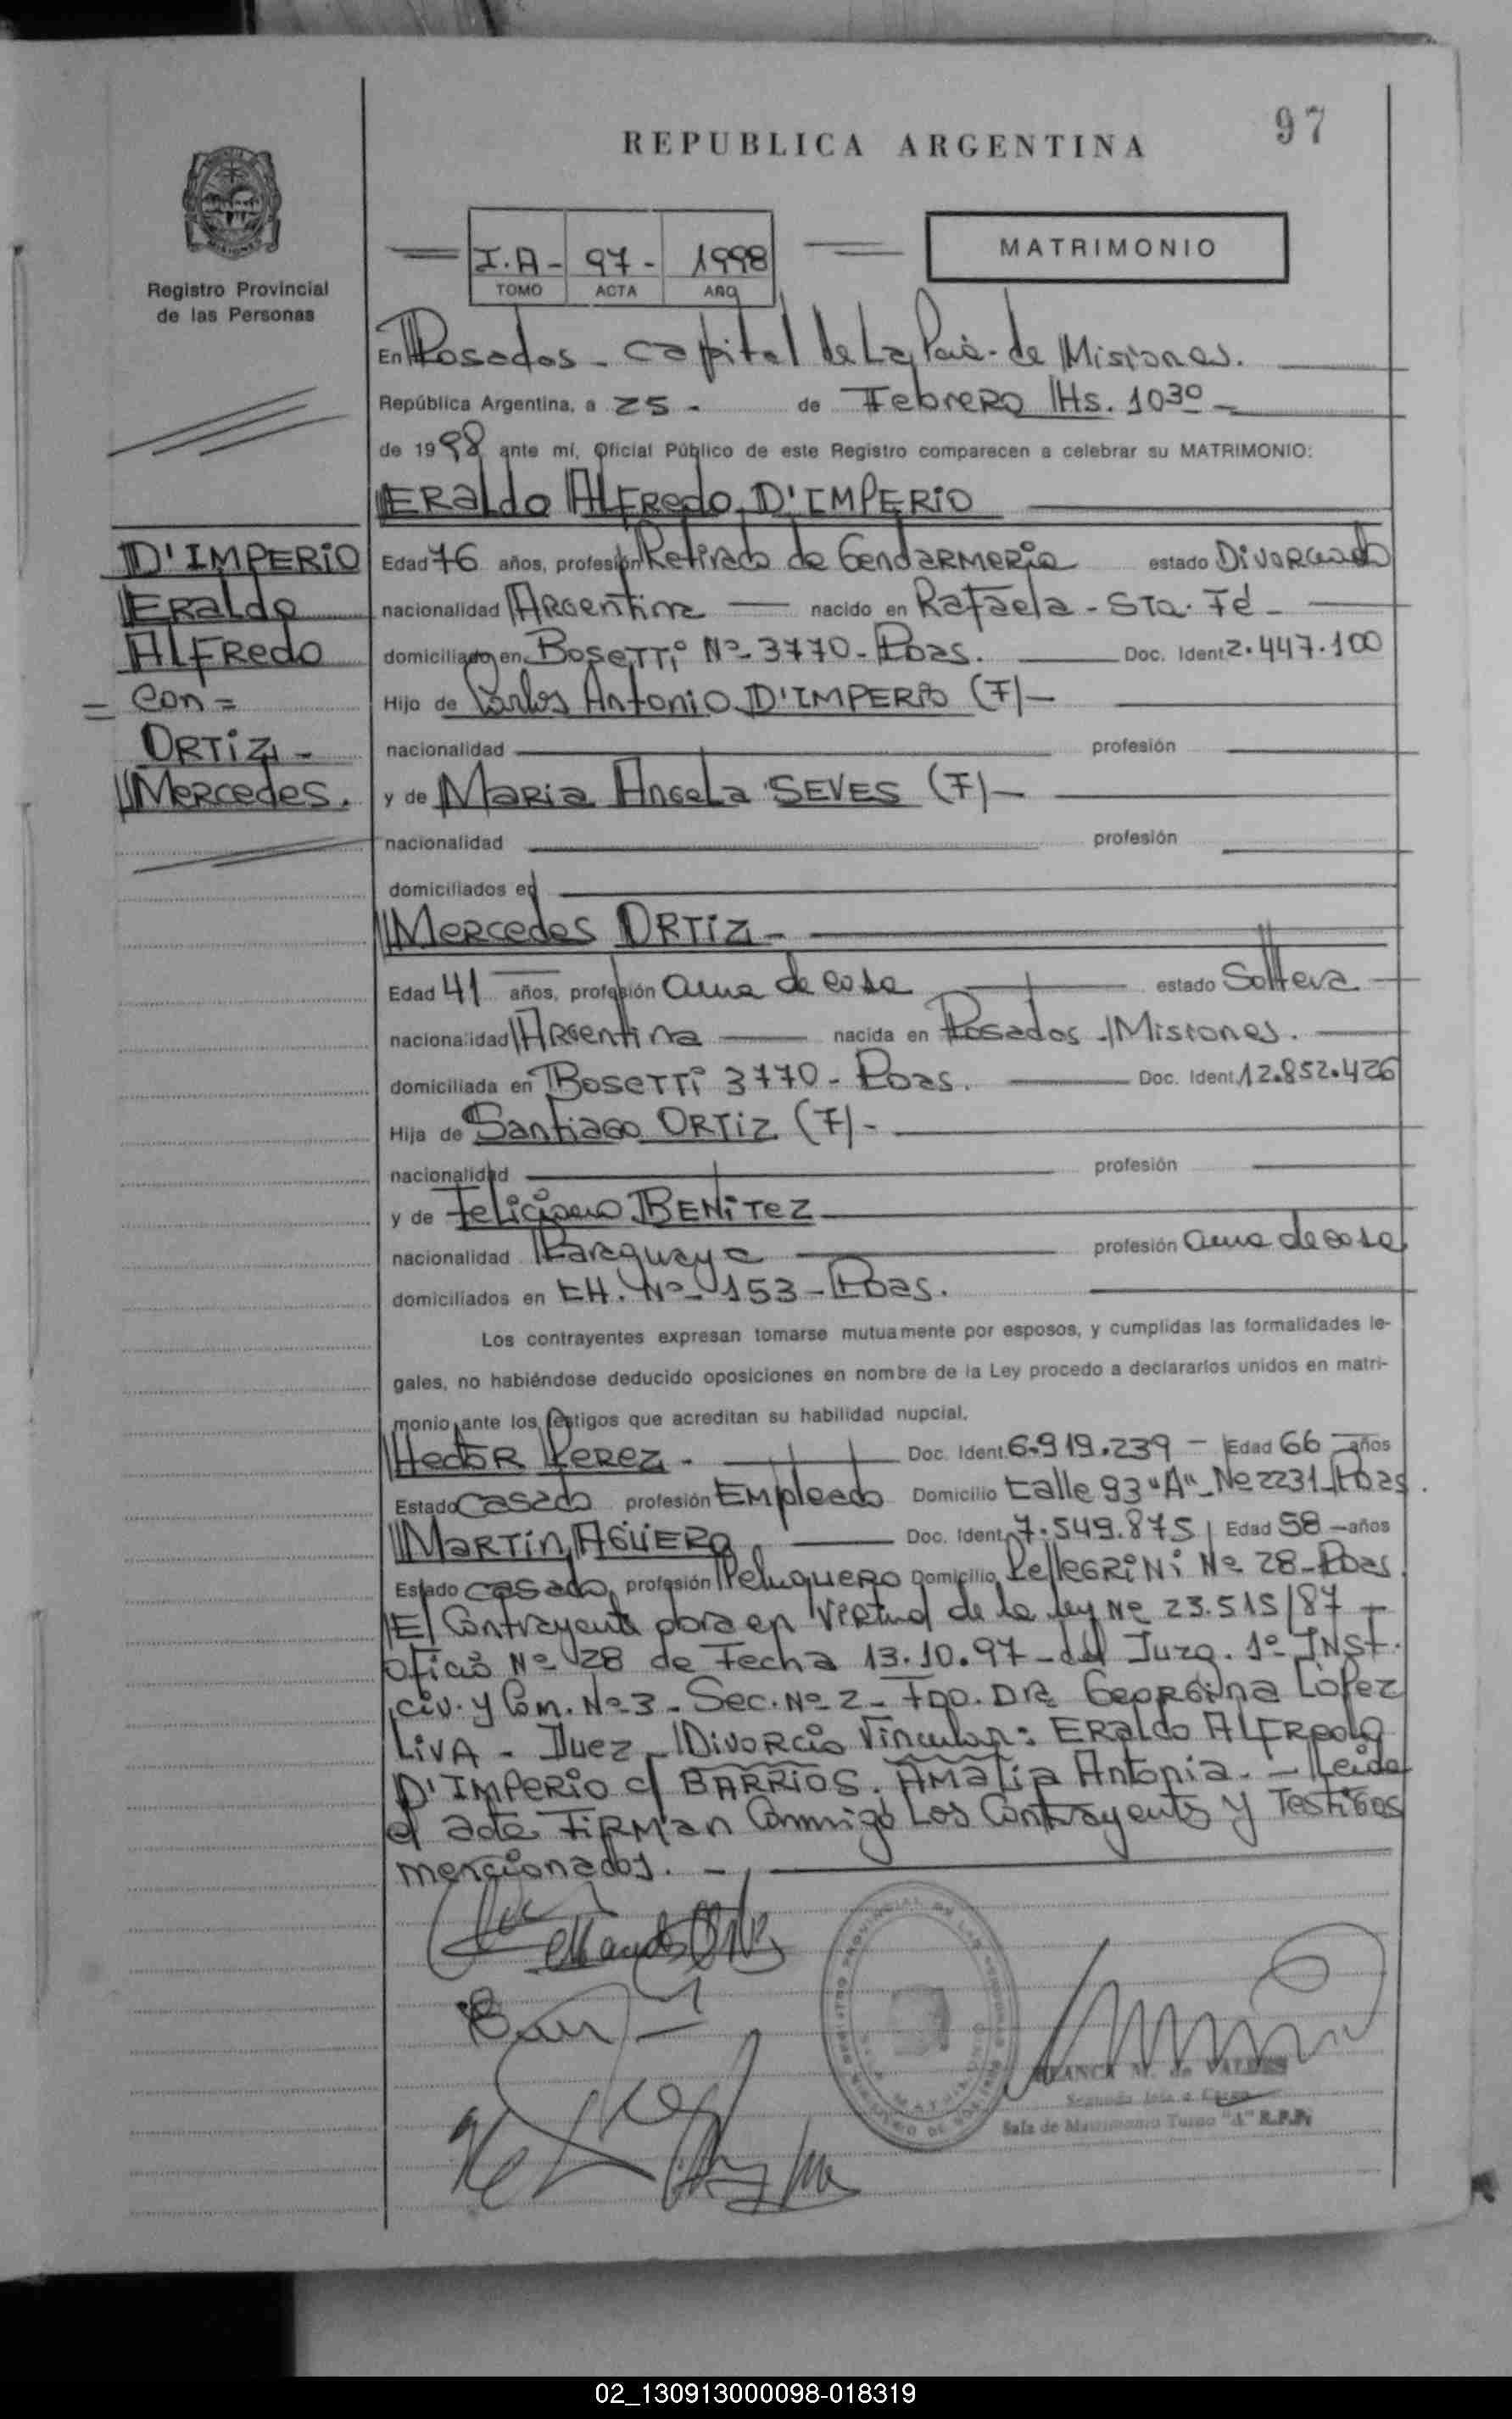 97
REPUBLICA ARGENTINA
I.A - 97 - 1998
TOMO ACTA AÑO
MATRIMONIO
Registro Provincial
de las Personas
En Posadas - Capital de La Pcia. de Misiones.
República Argentina, a 25 - de Febrero Hs. 10 30
de 1998 ante mí, Oficial Público de este Registro comparecen a celebrar su MATRIMONIO:
ERaldo ALFRedo D'IMPERiO
D'IMPERiO
ERaldo
ALFRedo
= con =
ORTiZ -
Mercedes.
Edad 76 años, profesión Retirado de GendaRMeRia estado Divorciado
nacionalidad Argentina nacido en Rafaela - Sta. Fé -
domiciliado en BoseTTi Nº 3770 - Pdas. Doc. Ident. 2.447.100
Hijo de Carlos Antonio D'IMPERiO (F) -
nacionalidad profesión
y de MaRia Angela SEVES (F) -
nacionalidad profesión
domiciliados en
Mercedes ORTiZ -
Edad 41 años, profesión ama de casa estado Soltera
nacionalidad Argentina nacida en Posadas - Misiones.
domiciliada en BoseTTi 3770 - Pdas. Doc. Ident. 12.852.426
Hija de Santiago ORTiZ (F) -
nacionalidad profesión
y de BENiTeZ
nacionalidad Paraguaya profesión ama de casa
domiciliados en CH. Nº 153 - Pdas.
Los contrayentes expresan tomarse mutuamente por esposos, y cumplidas las formalidades le-
gales, no habiéndose deducido oposiciones en nombre de la Ley procedo a declararlos unidos en matri-
monio ante los testigos que acreditan su habilidad nupcial.
HectoR Perez - Doc. Ident. 6.919.239 - Edad 66 años
Estado casado profesión Empleado Domicilio Calle 93 "A" - Nº 2231 - Pdas.
MaRTin AGÜERO Doc. Ident. 7.549.875 Edad 58 - años
Estado casado profesión PeluqueRO Domicilio PelleGRiNi Nº 28 - Pdas.
El Contrayente obra en Virtud de la Ley Nº 23.515/87 -
Oficio Nº 28 de Fecha 13.10.97 - del Juzg. 1º INST.
civ. y Com. Nº 3 - Sec. Nº 2 - Fdo. DRa GeoRGina López
LiVA - Juez - Divorcio Vincular: ERaldo ALFRedo
D'IMPeRio c/ BARRiOS, AMalia Antonia. - Leida
el acta FiRMan Conmigo Los Contrayentes y Testigos
mencionados. -
REGISTRO PROVINCIAL DE LAS PERSONAS
BLANCA M. de VALDES
Segunda Jefa a Cargo
Sala de Matrimonio Turno "A" R.P.P.
02_130913000098-018319